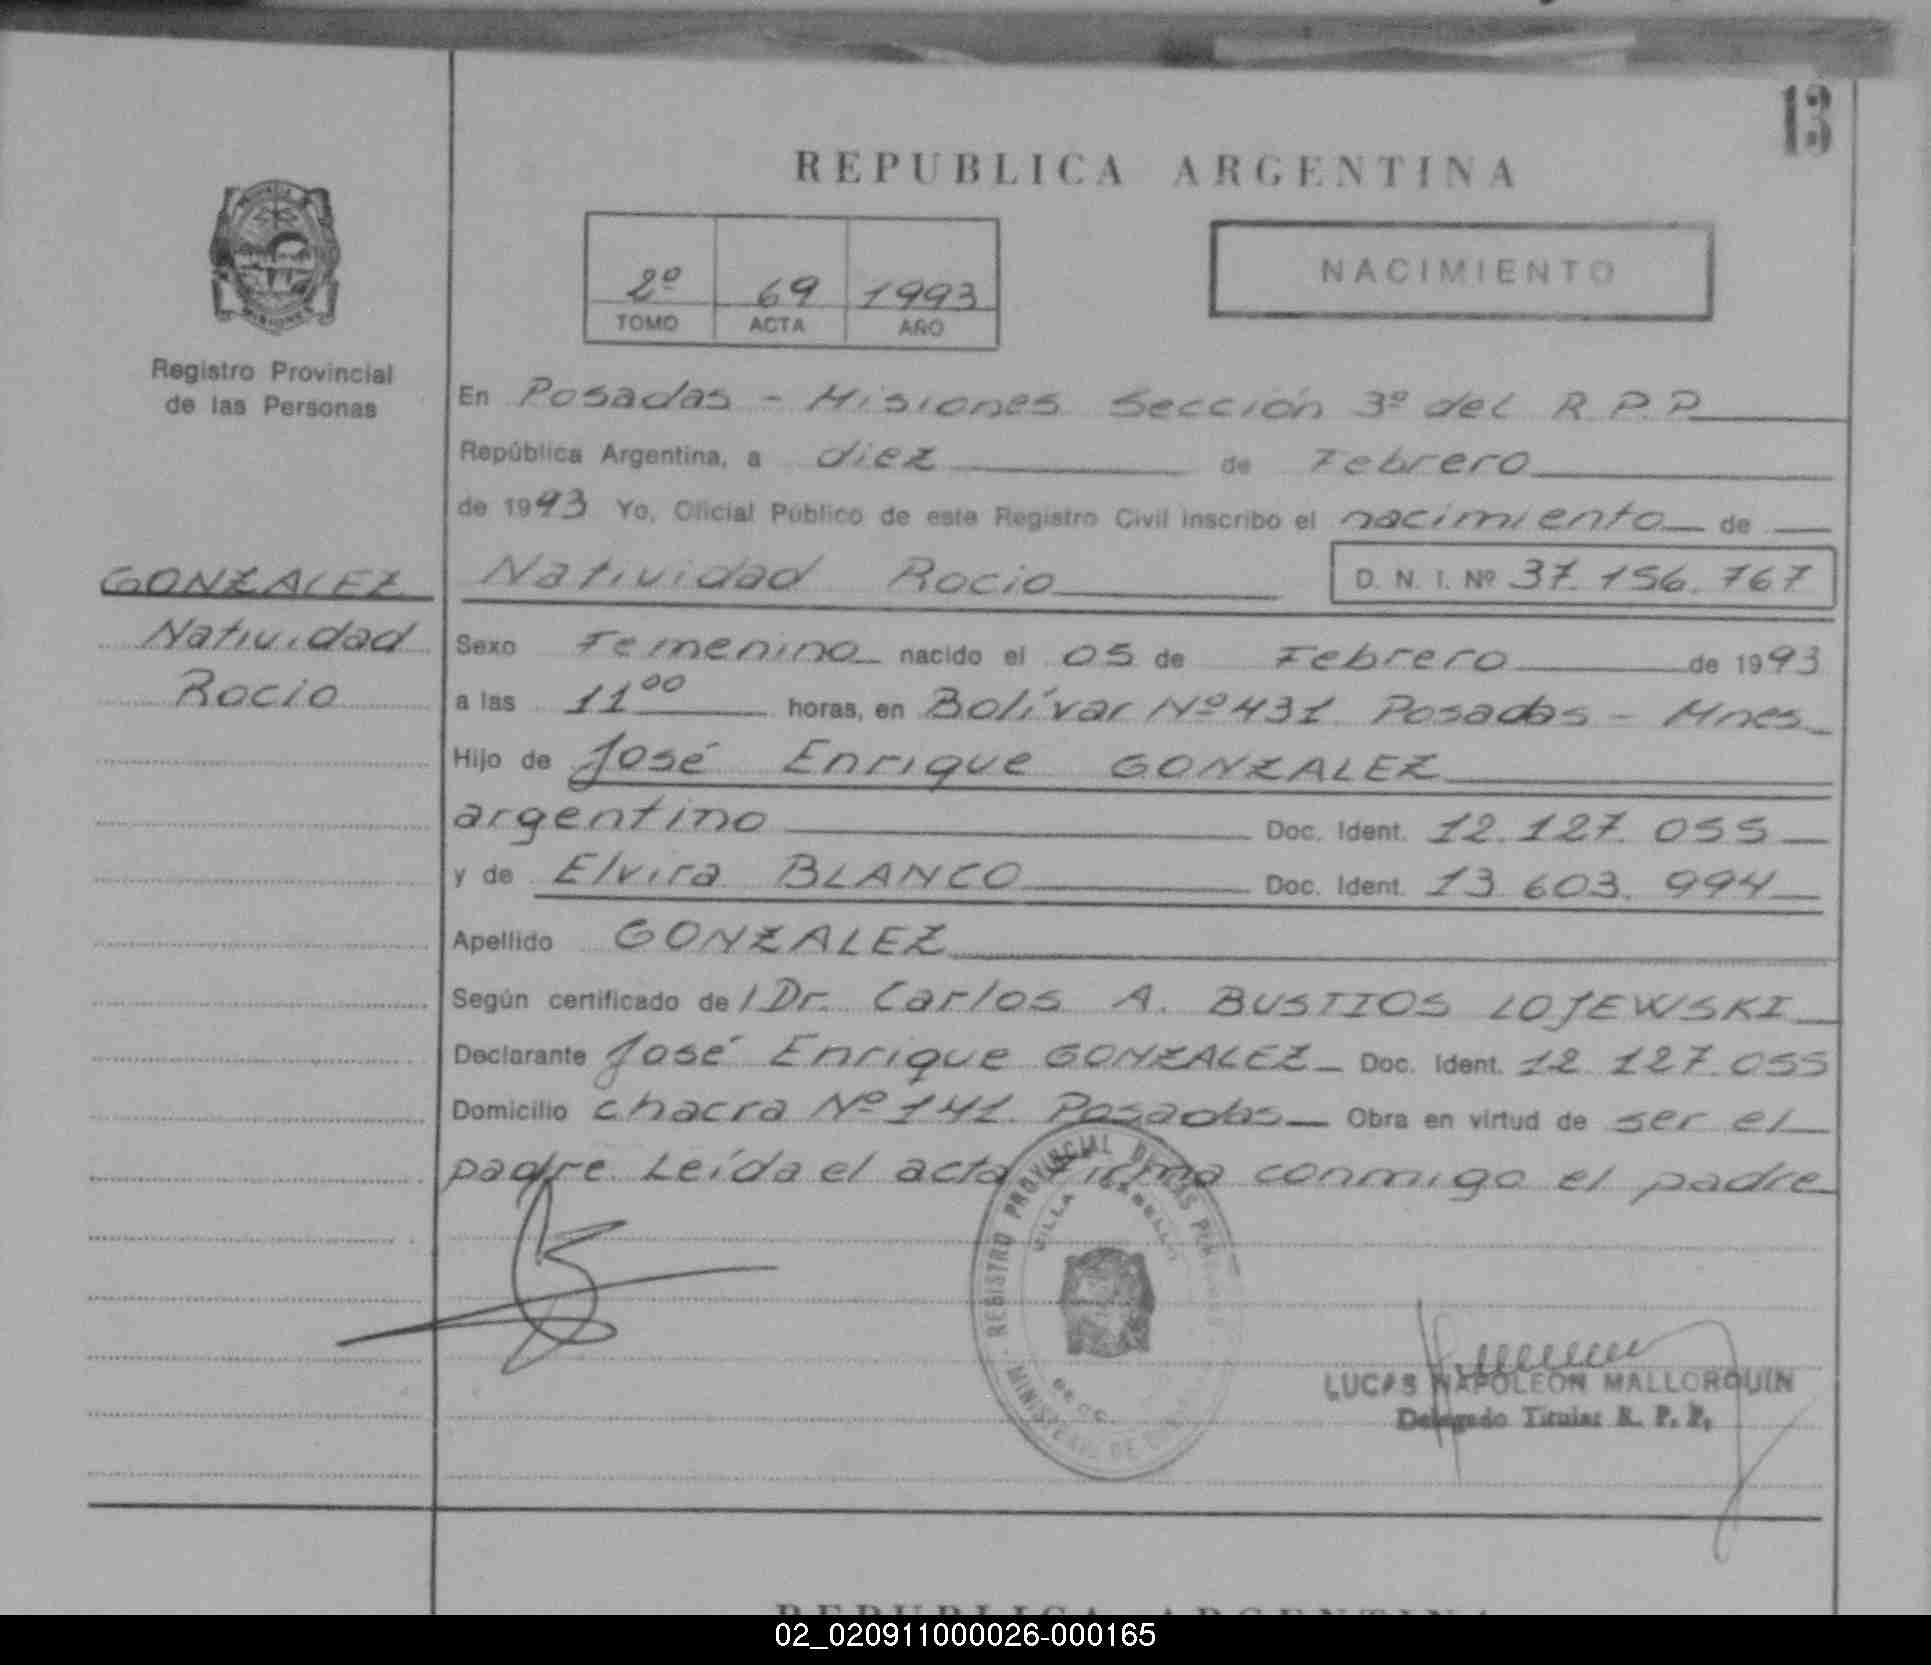 13
REPUBLICA ARGENTINA
2º 69 1993
TOMO ACTA AÑO
NACIMIENTO
MISIONES
Registro Provincial
de las Personas
GONZALEZ
Natividad
Rocio
En Posadas - Misiones Sección 3º del R.P.P
República Argentina, a diez de Febrero
de 1993 Yo, Oficial Público de este Registro Civil inscribo el nacimiento de
Natividad Rocio D. N. I. Nº 37.156.767
Sexo Femenino nacido el 05 de Febrero de 1993
a las 11⁰⁰ horas, en Bolívar Nº 431 Posadas - Mnes
Hijo de José Enrique GONZALEZ
argentino Doc. Ident. 12.127.055
y de Elvira BLANCO Doc. Ident. 13.603.994
Apellido GONZALEZ
Según certificado de l Dr. Carlos A. BUSTIOS LOJEWSKI
Declarante José Enrique GONZALEZ Doc. Ident. 12.127.055
Domicilio chacra Nº 141 Posadas Obra en virtud de ser el
padre. Leída el acta firma conmigo el padre
REGISTRO PROVINCIAL DE LAS PERSONAS
VILLA CABELLO
MINISTERIO DE
LUCAS NAPOLEON MALLORQUIN
Delegado Titular R. P. P.
REPUBLICA ARGENTINA
02_020911000026-000165